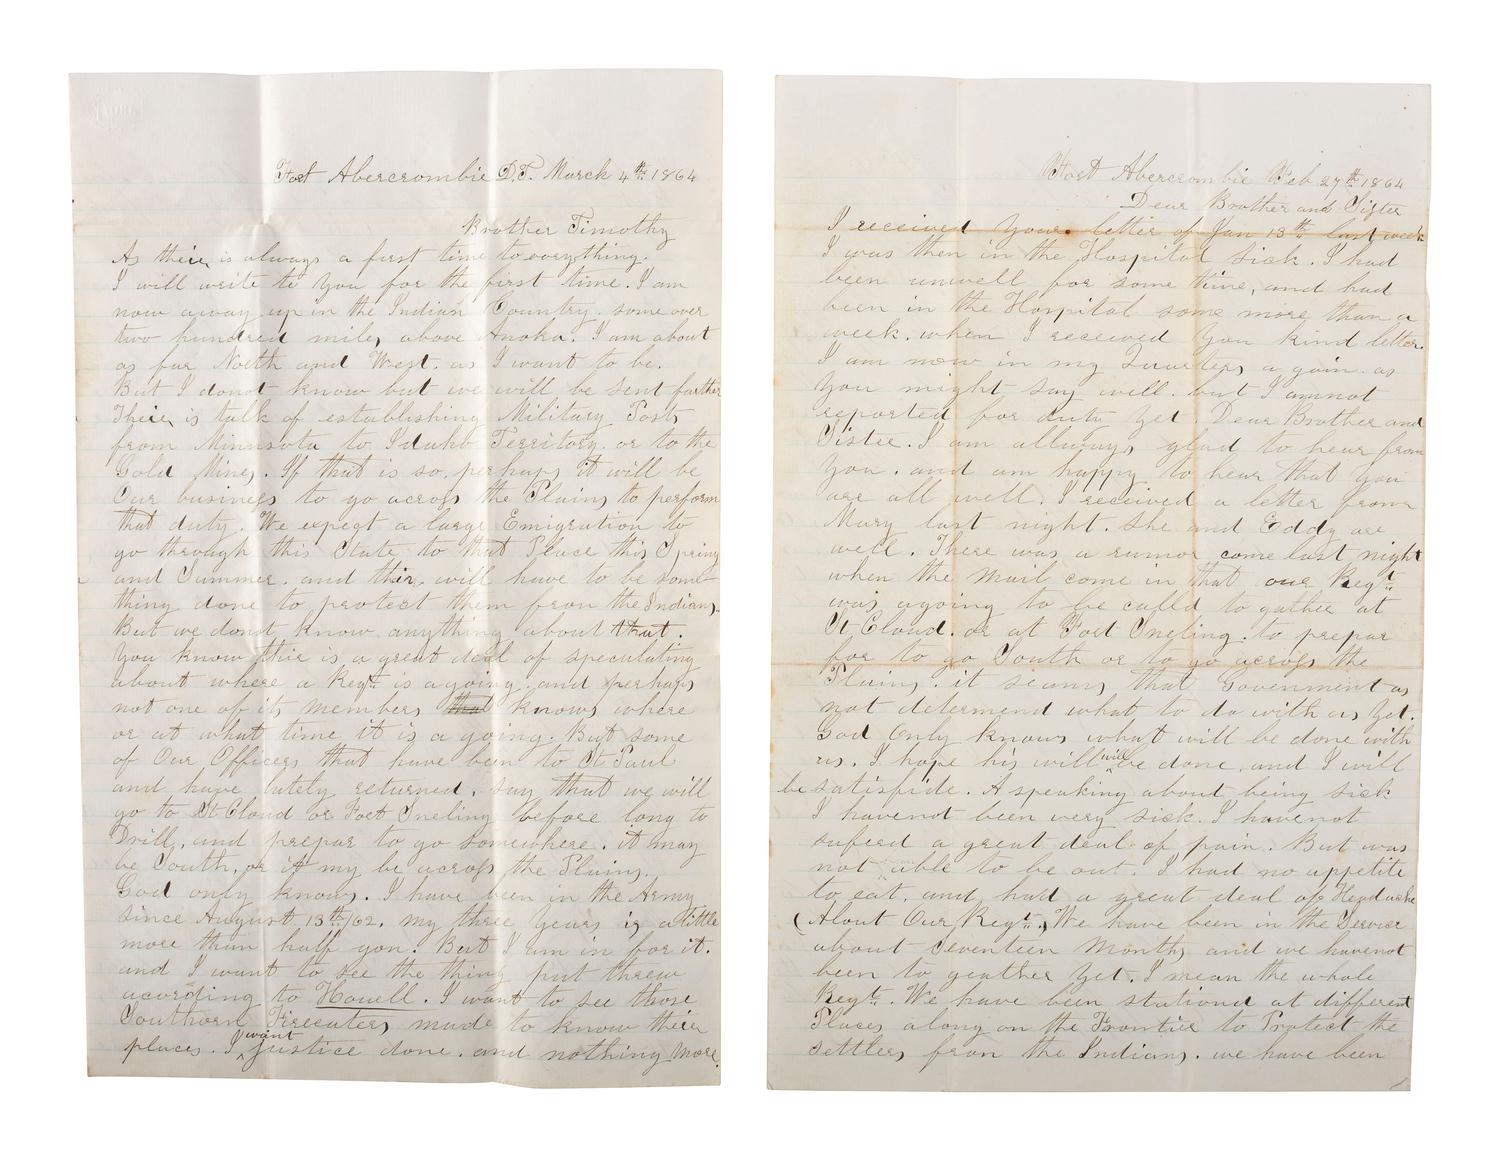 Fort Abercrombie D.T. March 4th 1864
Brother Timothy
As their is always a first time to everything.
I will write to you for the first time. I am
now away up in the Indian Country. some over
two hundred miles above Anoka. I am about
as far North and West. as I want to be.
But I donot know but we will be sent farther
Their is talk of establishing Military Posts
from Minnsota to Idaho Territory. or to the
Gold Mines. If that is so, perhaps it will be
Our business to go across the Plains to perform
that duty. We expect a large Emigration to
go through this State to that Place this Spring
and Summer. and their will have to be some-
thing done to protect them from the Indians.
But we donot know anything about that.
You know their is a great deal of speculating
about where a Regt. is agoing. and perhaps
not one of its members that knows where
or at what time it is a going. But some
of Our Officers that have been to St Paul
and have lately returned. say that we will
go to St Cloud or Fort Sneling before long to
Drill, and prepar to go somewhere. it may
be South, or it my be across the Plains.
God only knows. I have been in the Army
since August 13th/62. my three years is a little
more than half gon. But I am in for it.
and I want to see the thing put threw
acording to Howell. I want to see those
Southorn Fireeaters made to know their
places. I want justice done. and nothing more.
Fort Abercrombie Feb 27th 1864
Dear Brother and Sister
I received your letter of Jan 13th last week
I was then in the Hospital sick. I had
been unwell for some time, and had
been in the Hospital some more than a
week. when I received you kind letter.
I am now in my Quarters a gain. as
you might say well. but I amnot
reported for duty yet. Dear Brother and
Sister. I am allways glad to hear from
you. and am happy to hear that you
are all well. I received a letter from
Mary last night. She and Eddy are
well. There was a rumor come last night
when the mail come in that our Regt.
was agoing to be calld to gather at
St Cloud. or at Fort Sneling. to prepar
for to go South or to go across the
Plains. it seams that Goverment as
not determend what to do with us yet.
God Only knows what will be done with
us. I hope his will will be done. and I will
be satisfide. A speaking about being sick
I havenot been very sick. I havenot
suferd a great deal of pain. But was
not able to be out. I had no appetite
to eat. and had a great deal of Headache
(About Our Regt. We have been in the Service
about seventeen Months and we havenot
been to geather yet. I mean the whole
Regt. We have been stationd at different
Places along on the Frontier to Protect the
settlers from the Indians. we have been